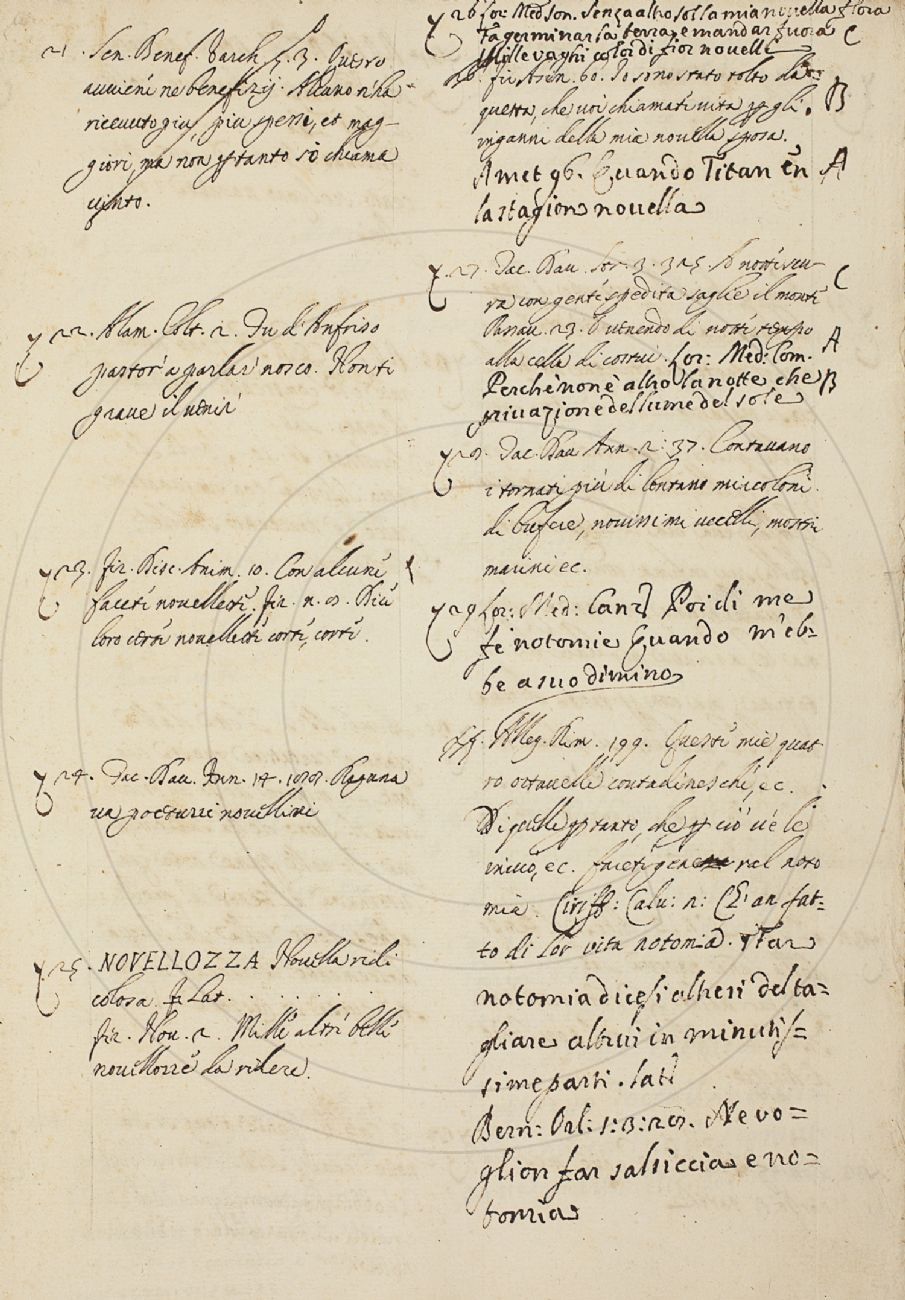 21. Sen. Benef. Varch. 5. 3. Questo
avviene ne benefizij. Alcuno n'ha
ricevuto giu, piu spessi, et mag-
giori, ma non ꝑtanto si chiama
vinto.
22. Alam. Colt. 1. Tu d'Anfriso
pastor' a parlar' nosco. Non ti
grave il venir'
23. fir. Disc. Anim. 10. Con alcune
facete novellette. fir. n. 8. Dice
loro certe novellette corte, corte.
24. Dav. Ann. 14. Raguna
va poeturii novellini
25. NOVELLOZZA Novella ridi
colosa. Lat. . . . . . .
fir. Nov. 2. Mille altre belle
novellozze da ridere.
26 Lor: Med son. Senza altro sol la mia novella flora
Fa germinar la terra, e mandar fuora C
Mille vaghi color di fior novelli
fir Asin. 60. Io sono stato tolto da
questa, che voi chiamate vita ꝑ gli B
inganni della mia novella sposa.
Amet 96. Quando Titan en A
la stagione novella
27. Dav. 3. 325. A notte scu-
ra con gente spedita saglie il monte C
Passav. 23. E venendo di notte tempo
alla cella di costui. Lor: Med: Com. A
Perche non è altro la notte che B
privazione del lume del sole
28. Dav. Ann. 2: 37. Contavano
i tornati più di lontano miracoloni
di bufere, nuovissimi uccelli, mostri
marini ec.
29 Lor: Med: Canz Poi di me
fe notomie Quando m'eb=
be a suo dimino
Alleg. Rim. 199. Queste mie quat
ro ottavelle contadinesche, ec.
Di quelle ꝑtanto, che ꝑ ciò v'è le
invio, ec. facetigene nel noto
mia. Ciriff: Calv: n: Ch'an fat=
to di lor vita notomia. Far
notomia dicesi altresi del ta=
gliare altrui in minutis=
sime parti. Lat:
Bern: Orl: 1: 3: 28. Ne vo=
glion far salsiccia e no=
tomia